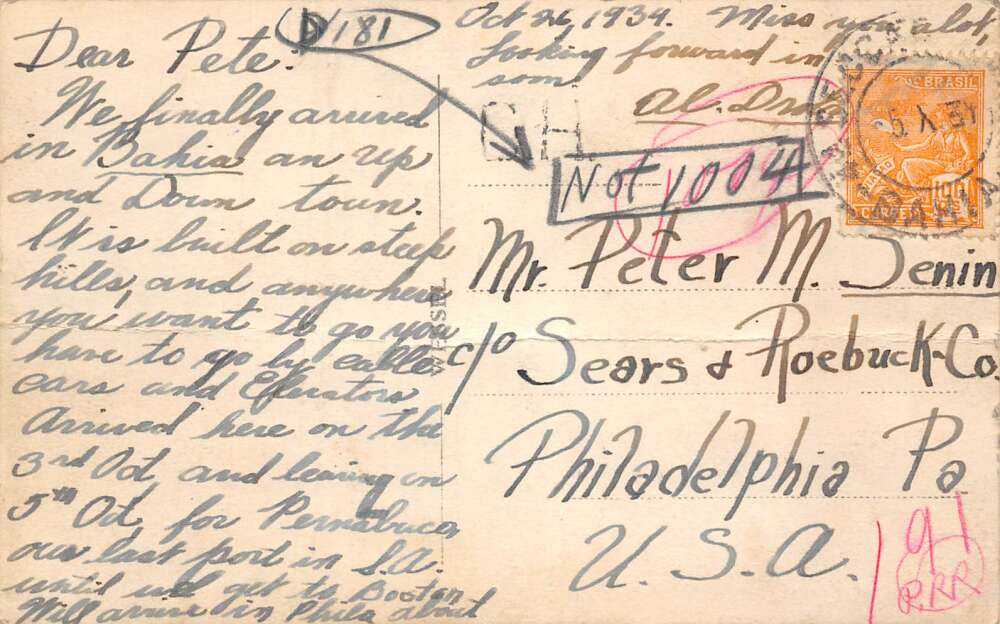 Dear Pete.
We finally arrived
in Bahia an up
and Down town.
It is built on steep
hills, and anywhere
you want to go you
have to go by cable
cars and Elevators
Arrived here on the
3rd Oct, and leaving on
5th Oct, for Pernabuco,
our last port in S.A.
until we get to Boston
Will arrive in Phila about
Oct 26, 1934. Miss you alot,
Looking forward in
soon!
Al.
D/181
GH
Not 1004
BRASIL
BAHIA
Mr. Peter M. Senin
c/o Sears & Roebuck-Co.
Philadelphia Pa
U.S.A.
191
R.RR